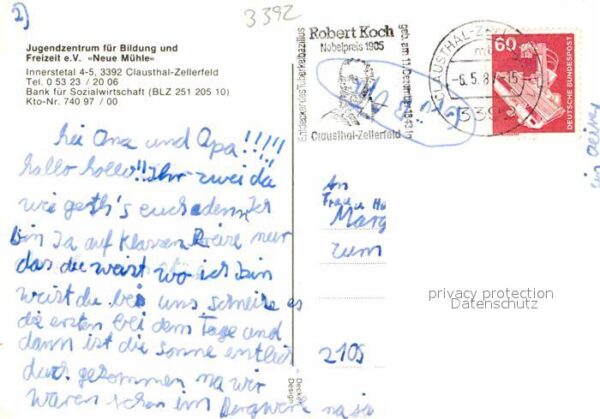 2)
3392
Jugendzentrum für Bildung und
Freizeit e.V. «Neue Mühle»
Innerstetal 4-5, 3392 Clausthal-Zellerfeld
Tel. 0 53 23 / 20 06
Bank für Sozialwirtschaft (BLZ 251 205 10)
Kto-Nr. 740 97 / 00
hei Oma und Opa!!!!!
hollo hollo!! Ihr zwei da
wie geth's euch denn Ich
bin Ja auf Klassen Reise nur
das du weist wo ich bin
weist du bei uns schneite es
die ersten drei dem Tage und
dann ist die Sonne entlich
durch gekommen na wir
waren schon im Bergwerk na ja
Entdecker des Tuberkelbazillus
Robert Koch
Nobelpreis 1905
geb. am 11. Dezember 1843 in
Clausthal-Zellerfeld
CLAUSTHAL-ZELL
-6.5.8 -15
3392
60
DEUTSCHE BUNDESPOST
An
Frau
Marg
zum
2105
privacy protection
Datenschutz
Decker
Design